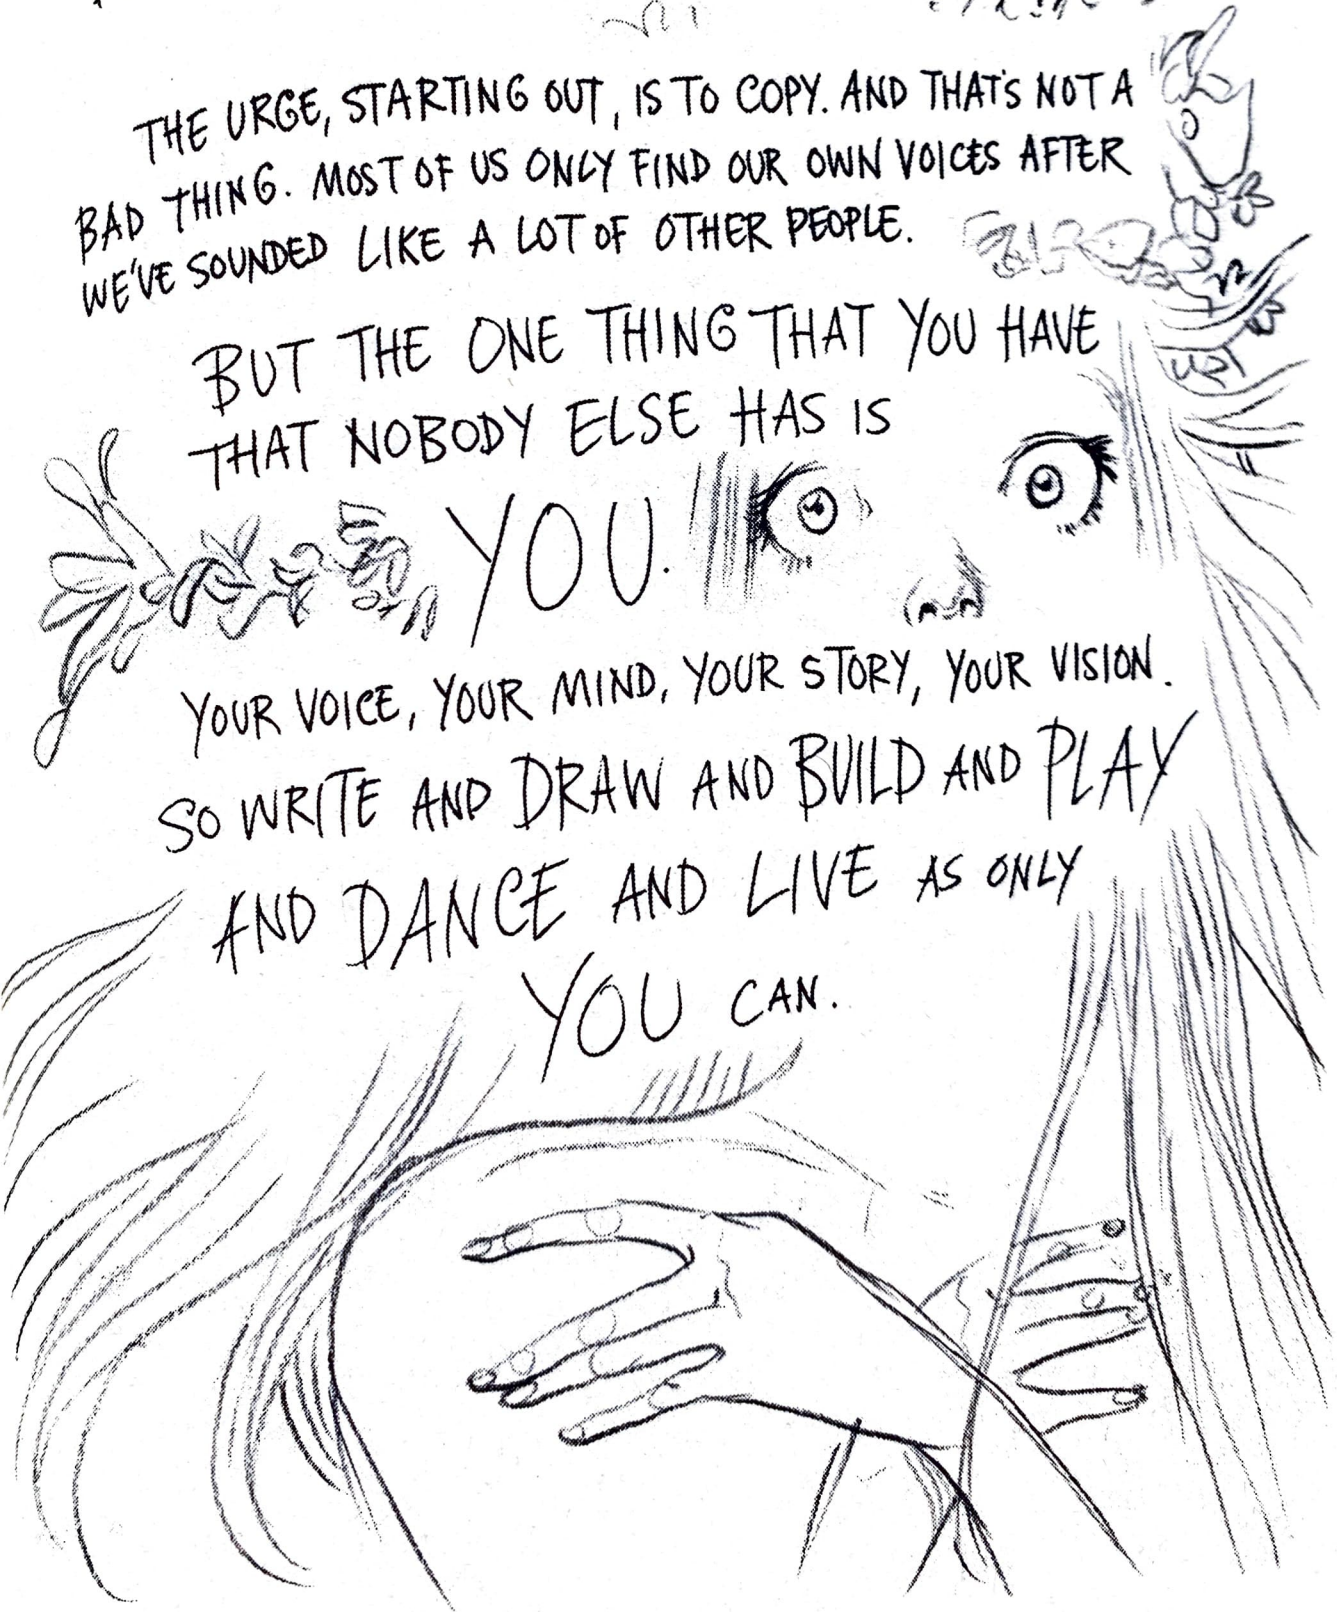 THE URGE, STARTING OUT, IS TO COPY. AND THAT'S NOT A
BAD THING. MOST OF US ONLY FIND OUR OWN VOICES AFTER
WE'VE SOUNDED LIKE A LOT OF OTHER PEOPLE.
BUT THE ONE THING THAT YOU HAVE
THAT NOBODY ELSE HAS IS
YOU.
YOUR VOICE, YOUR MIND, YOUR STORY, YOUR VISION.
SO WRITE AND DRAW AND BUILD AND PLAY
AND DANCE AND LIVE AS ONLY
YOU CAN.